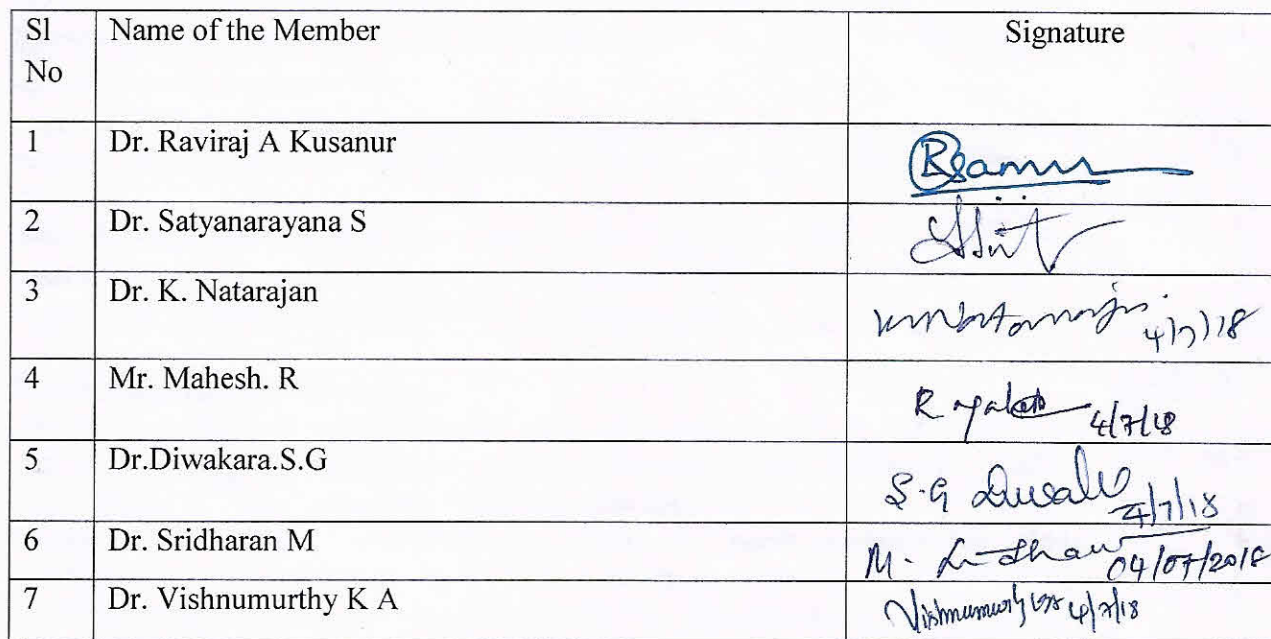 Sl No Name of the Member Signature
1 Dr. Raviraj A Kusanur
2 Dr. Satyanarayana S
3 Dr. K. Natarajan 4/7/18
4 Mr. Mahesh. R 4/7/18
5 Dr.Diwakara.S.G S.G 4/7/18
6 Dr. Sridharan M M. 04/07/2018
7 Dr. Vishnumurthy K A 4/7/18